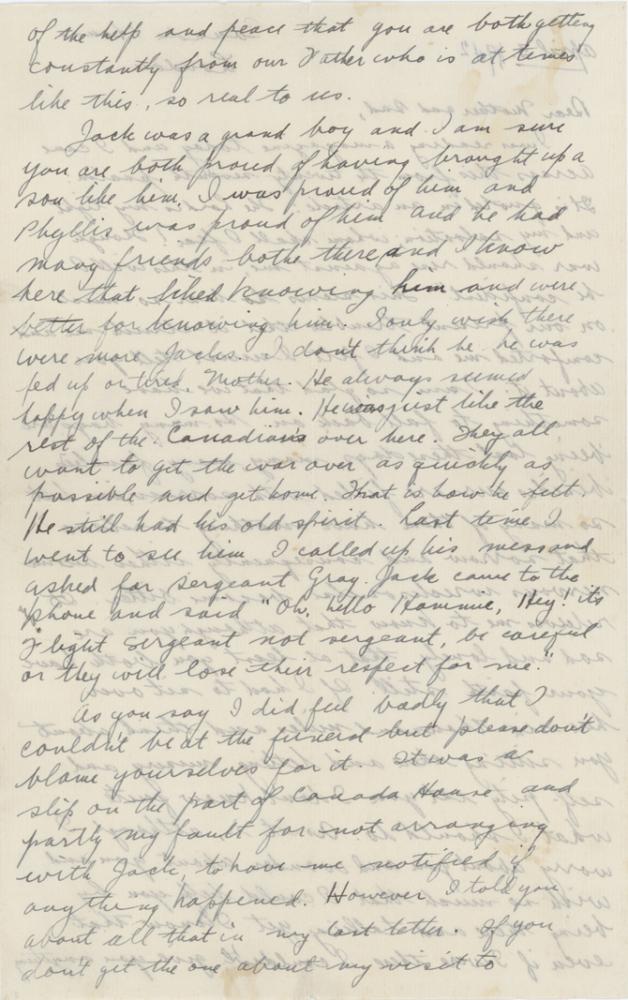 of the help and peace that you are both getting
constantly from our Father who is at times
like this, so real to us.
Jack was a grand boy and I am sure
you are both proud of having brought up a
son like him. I was proud of him and
Phyllis was proud of him and he had
many friends bothe there and I know
here that liked knowing him and were
better for knowing him. I only wish there
were more Jacks. I don't think he he was
fed up or tired, Mother. He always seemed
happy when I saw him. He was just like the
rest of the Canadians over here. They all
want to get the war over as quickly as
possible and get home. That is how he felt.
He still had his old spirit. Last time I
went to see him I called up his mess and
asked for Sergeant Gray. Jack came to the
phone and said "Oh, hello Hammie, Hey! its
Flight Sergeant not sergeant, be careful
or they will lose their respect for me."
As you say I did feel badly that I
couldn't be at the funeral but please don't
blame yourselves for it. It was a
slip on the part of Canada House and
partly my fault for not arranging
with Jack, to have me notified if
anything happened. However I told you
about all that in my last letter. If you
don't get the one about my visit to